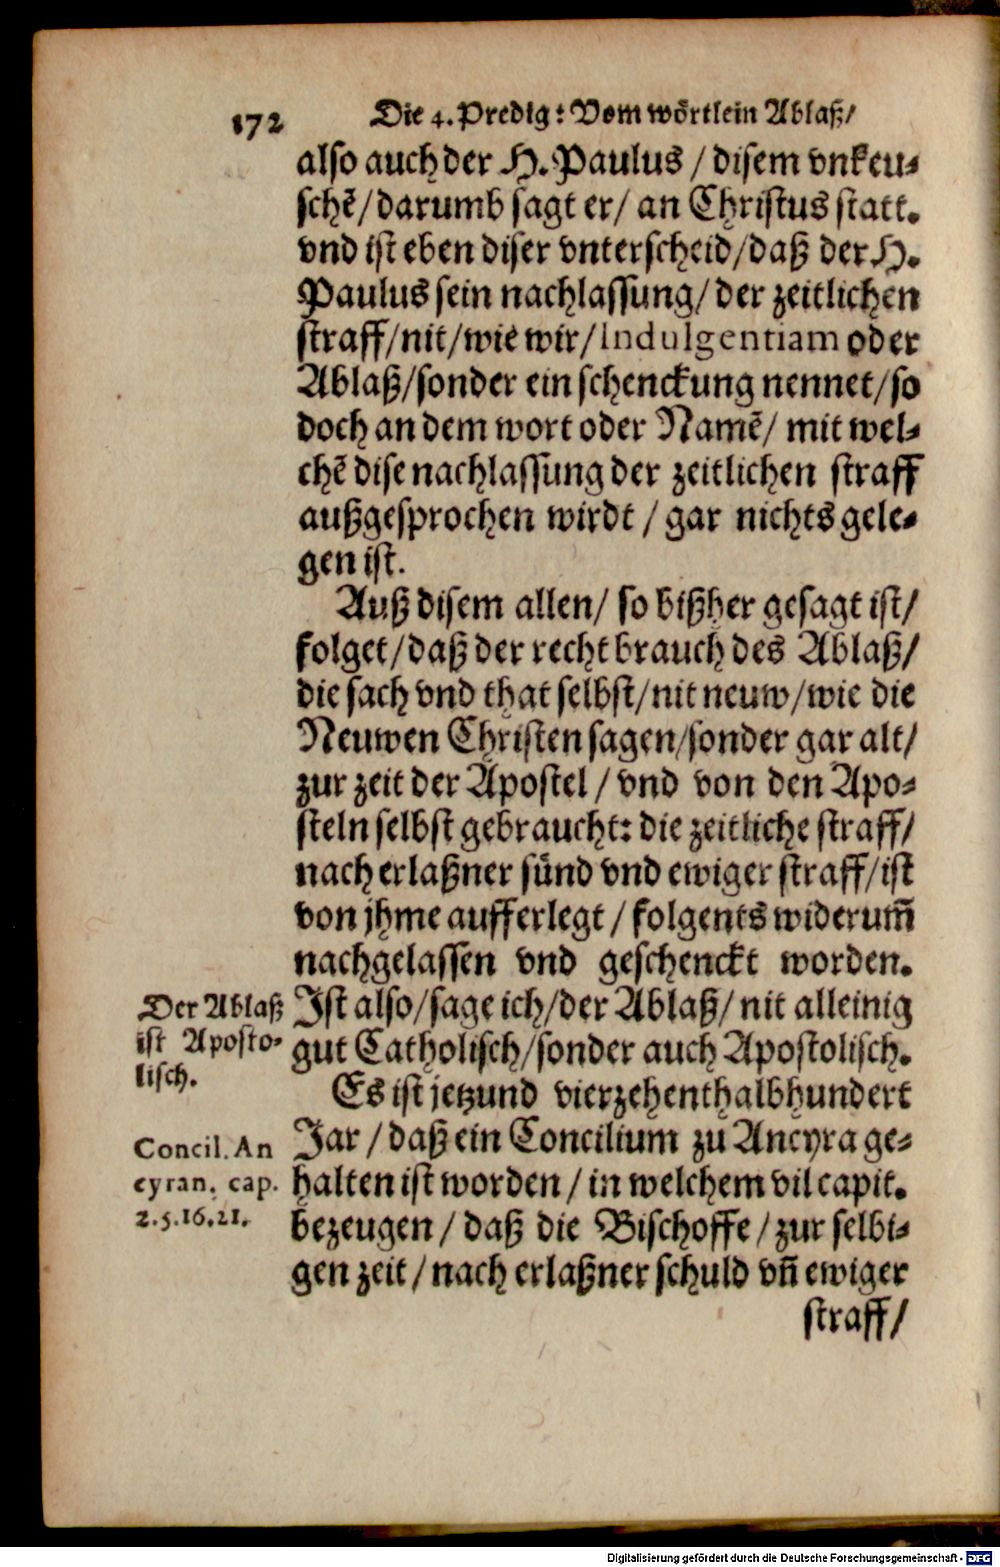 172 Die 4. Predig: Vom wörtlein Ablaß/
also auch der H. Paulus / disem vnkeu-
schẽ/darumb sagt er/ an Christus statt.
vnd ist eben diser vnterscheid/daß der H.
Paulus sein nachlassung/ der zeitlichen
straff/nit/wie wir/Indulgentiam oder
Ablaß/sonder ein schenckung nennet/so
doch an dem wort oder Namẽ/ mit wel-
chẽ dise nachlassung der zeitlichen straff
außgesprochen wirdt / gar nichts gele-
gen ist.
Auß disem allen/ so bißher gesagt ist/
folget/daß der recht brauch des Ablaß/
die sach vnd that selbst/nit neuw/wie die
Neuwen Christen sagen/sonder gar alt/
zur zeit der Apostel / vnd von den Apo-
steln selbst gebraucht: die zeitliche straff/
nach erlaßner sünd vnd ewiger straff/ist
von jhme aufferlegt / folgents widerum̃
nachgelassen vnd geschenckt worden.
Ist also/sage ich/der Ablaß/ nit alleinig
gut Catholisch/sonder auch Apostolisch.
Der Ablaß
ist Aposto-
lisch.
Es ist jetzund vierzehenthalbhundert
Jar / daß ein Concilium zu Ancyra ge-
halten ist worden / in welchem vil capit.
bezeugen / daß die Bischoffe / zur selbi-
gen zeit / nach erlaßner schuld vñ ewiger
Concil. An
cyran. cap.
2.5.16.21.
straff/
Digitalisierung gefördert durch die Deutsche Forschungsgemeinschaft - DFG